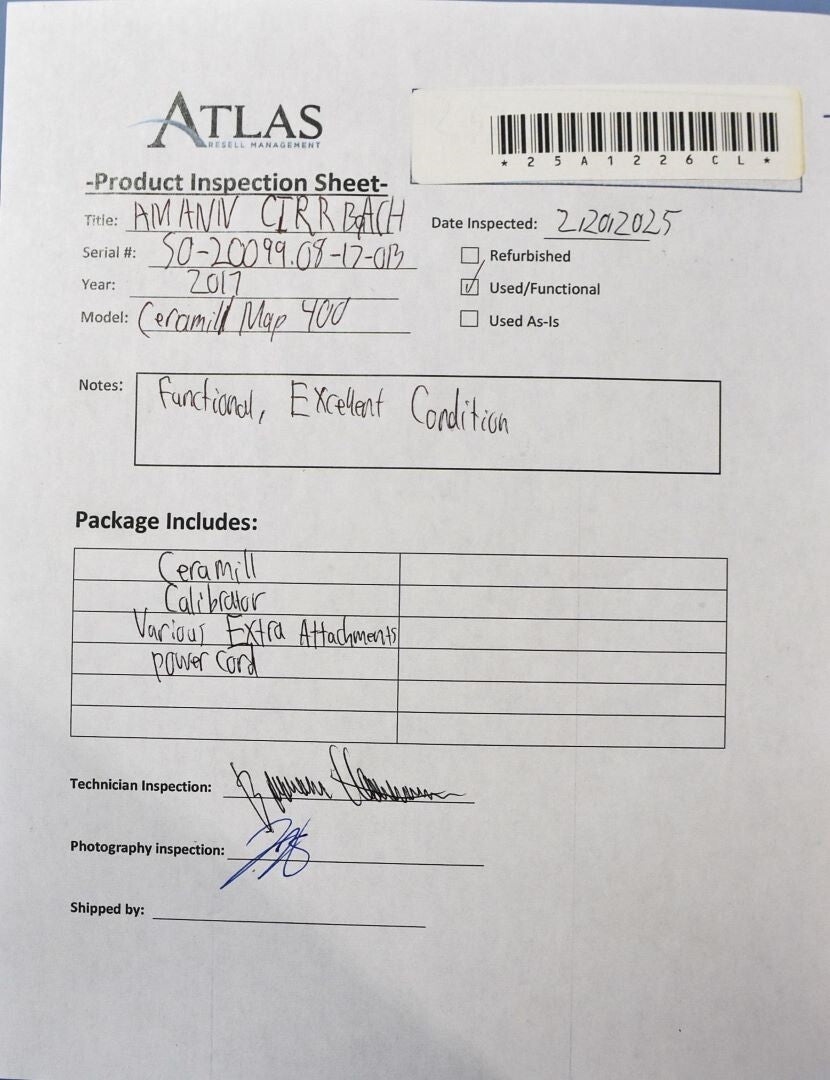 ATLAS
RESELL MANAGEMENT
*25A1226CL*
-Product Inspection Sheet-
Title: AMANN CIRRBACH
Date Inspected: 2,20,2025
Serial #: SO-20099.08-17-013
Refurbished
Year: 2017
Used/Functional
Model: Ceramill Map 400
Used As-Is
Notes: Functional, Excellent Condition
Package Includes:
Ceramill
Calibrator
Various Extra Attachments
power cord
Technician Inspection:
Photography inspection:
Shipped by: